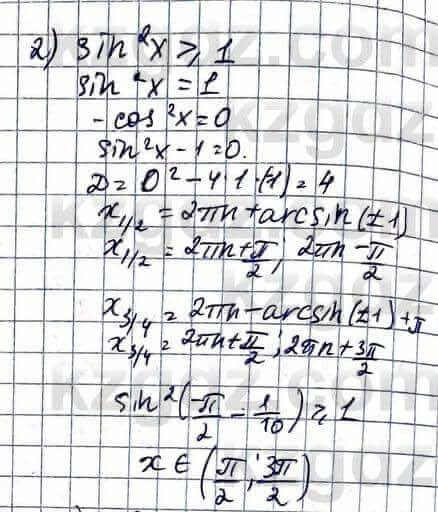 2) sin²x ⩾ 1
sin²x = 1
-cos²x = 0
sin²x - 1 = 0.
D = 0² - 4·1·(-1) = 4
x₁/₂ = 2πn + arcsin(±1)
x₁/₂ = 2πn + π/2; 2πn - π/2
x₃/₄ = 2πn - arcsin(±1) + π
x₃/₄ = 2πn + π/2; 2πn + 3π/2
sin²(π/2 - 1/10) ⩾ 1
x ∈ (π/2; 3π/2)